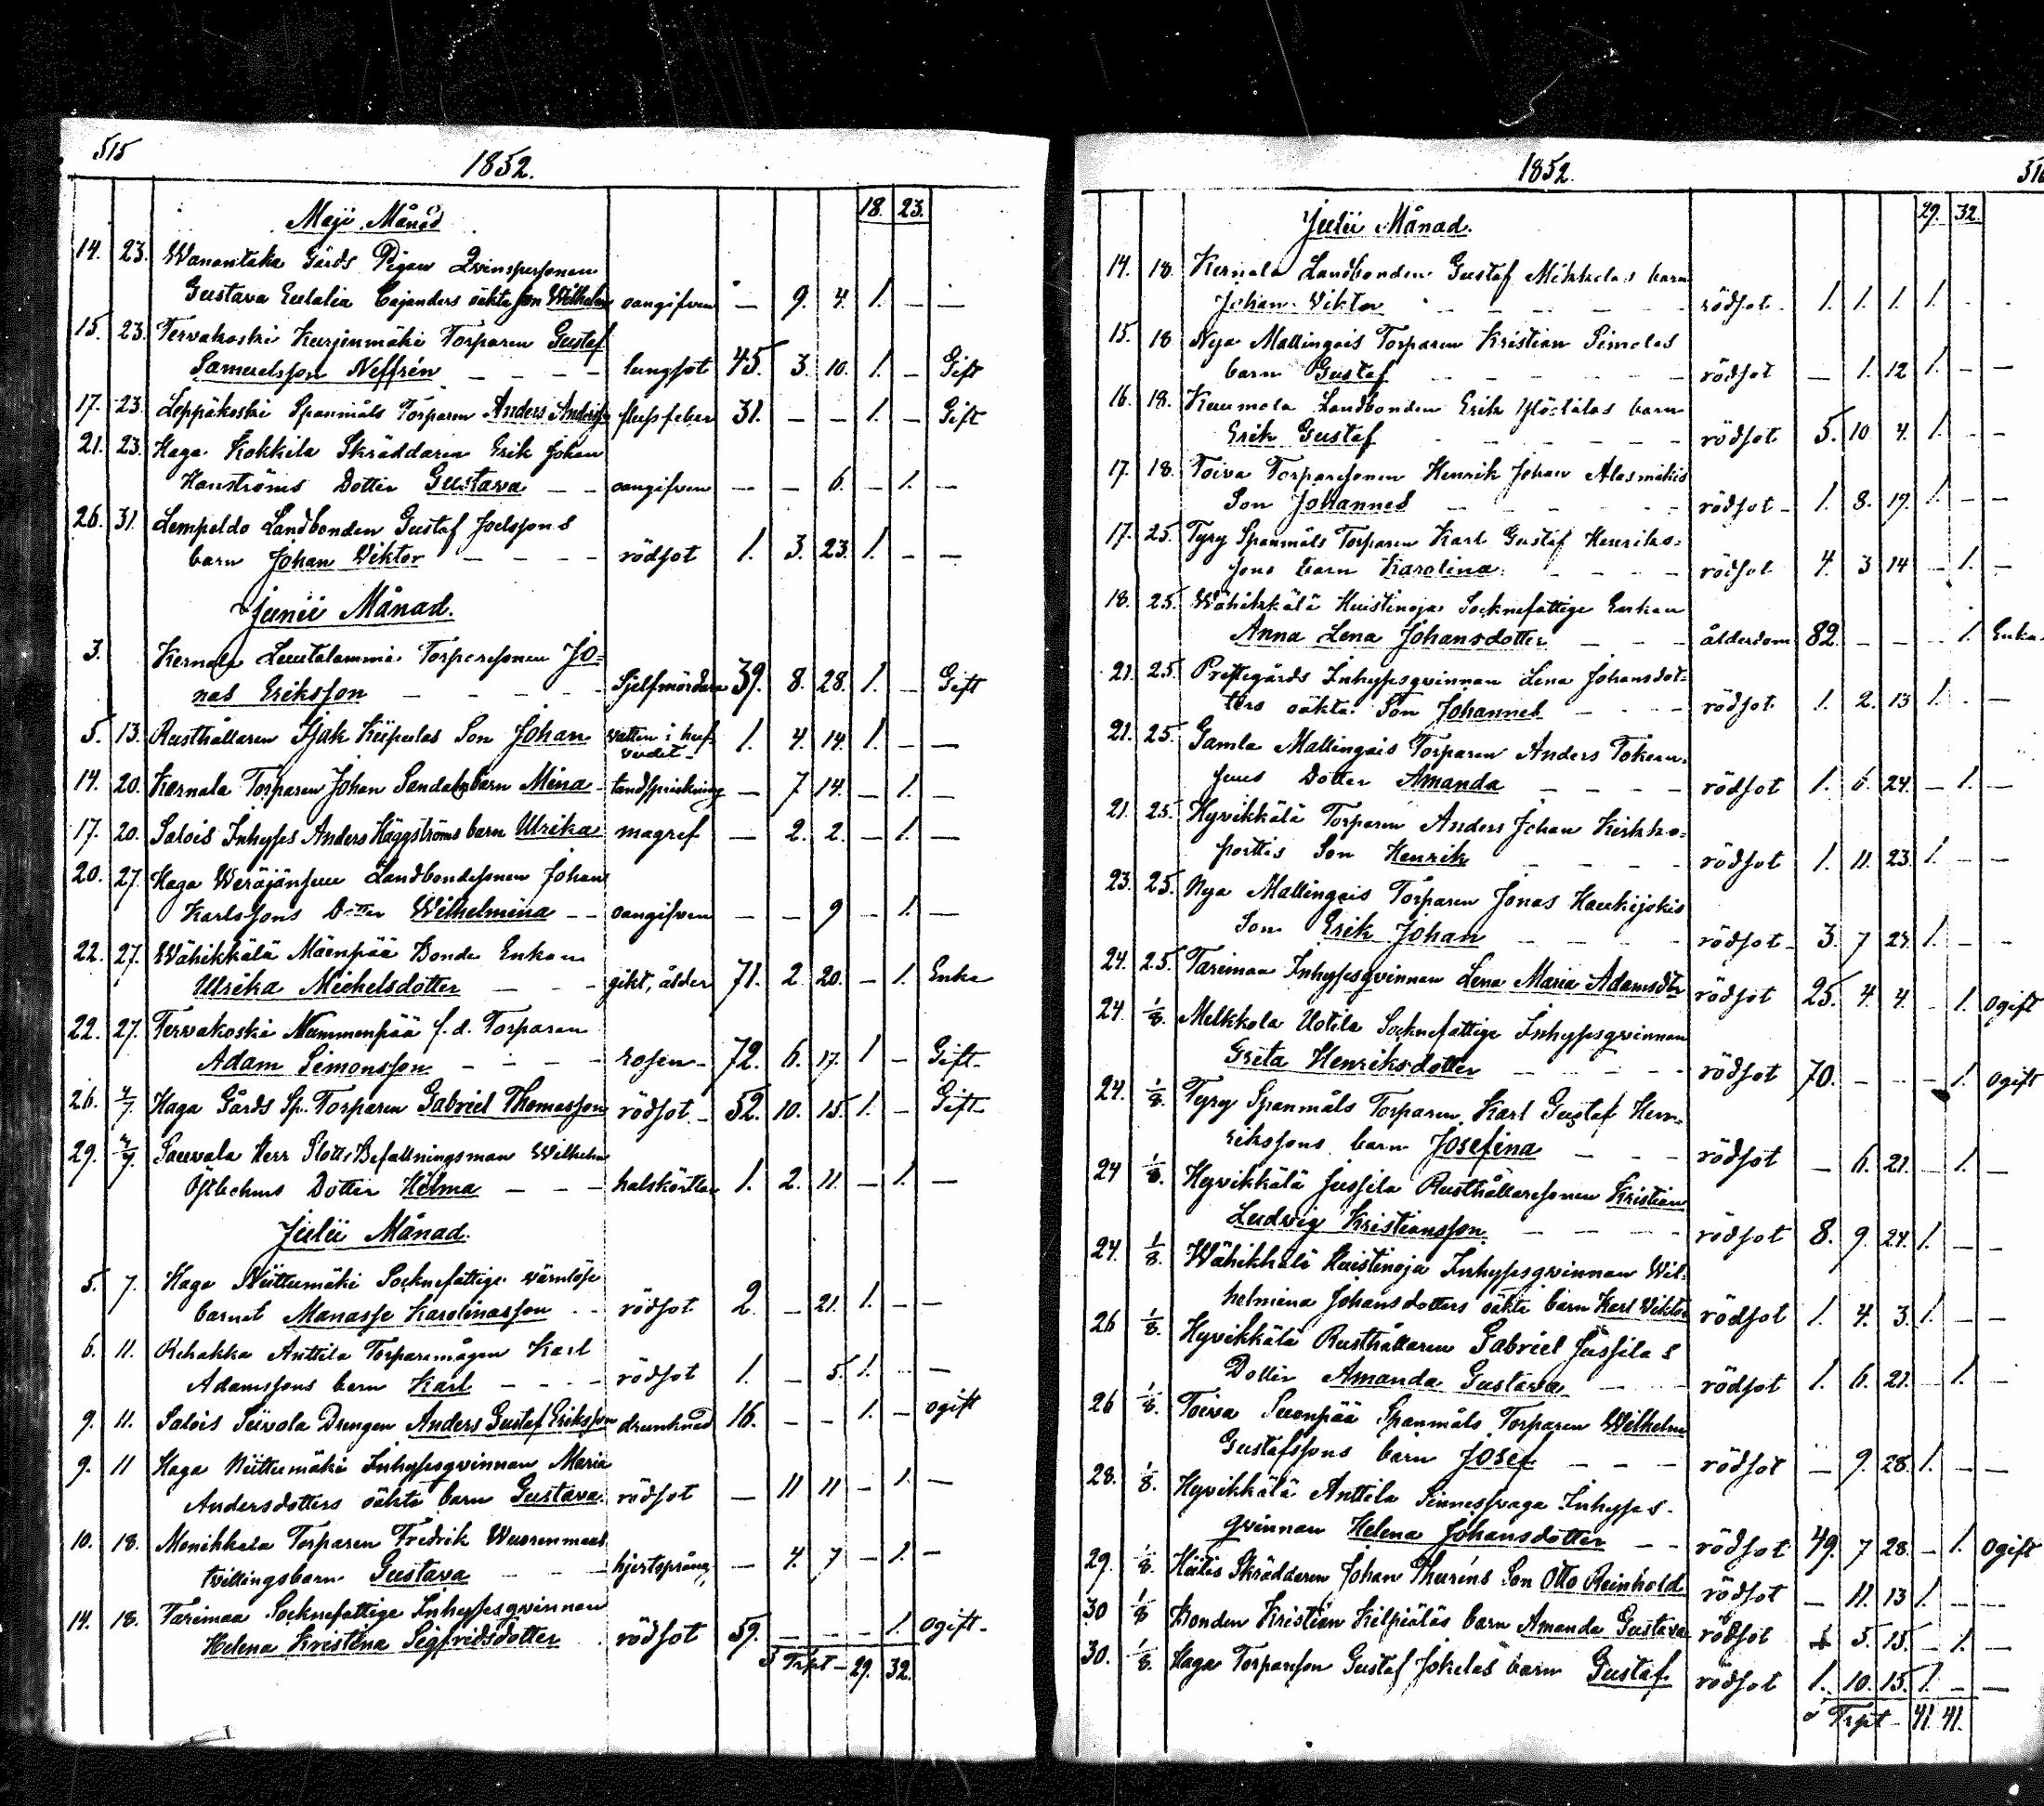 515
1852.
18. 23.
Maji Månad
14. 23. Wanantaka Gårds Pigan Qvinspersonen
Gustava Eulalia Cajanders oäkta son Wilhelm oangifven — 9. 4. 1. — —
15. 23. Tervakoski Kurjenmäki Torparen Gustaf
Samuelsson Neffrén — — — — lungsot 45. 3. 10. 1. — Gift
17. 23. Leppäkoski Spanmåls Torparen Anders Andersson flussfeber 31. — — 1. — Gift
21. 23. Haga Kokkila Skräddaren Erik Johan
Hanströms Dotter Gustava — — oangifven — — 6. — 1. —
26. 31. Lempeldo Landbonden Gustaf Joelssons
barn Johan Viktor — — — — rödsot 1. 3. 23. 1. — —
Junii Månad.
3. Kernala Luutalammi Torparesonen Jo=
nas Eriksson — — — — — Sjelfmördare 39. 8. 28. 1. — Gift
5. 13. Rusthållaren Isak Kiipulas Son Johan vatten i huf-
vudet 1. 4. 14. 1. — —
14. 20. Kernala Torparen Johan Sandals barn Mina tandsprickning — 7 14. — 1. —
17. 20. Salois Inhyses Anders Häggströms barn Ulrika magref — 2. 2. — 1. —
20. 27. Haga Weräjänsuu Landbondesonen Johan
Karlssons Dotter Wilhelmina — — oangifven — — 9 — 1. —
22. 27. Wähikkälä Mäenpää Bonde Enkan
Ulrika Michelsdotter — — — gikt, ålder 71. 2 20. — 1. Enka
22. 27. Tervakoski Nummenpää f.d. Torparen
Adam Simonsson — — — — rosen — 72. 6. 17. 1 — Gift
26. 4/7. Haga Gårds Sp. Torparen Gabriel Thomasson rödsot — 52. 10. 15. 1. — Gift
29. 4/7. Sauvala Herr Slotts Befallningsman Wilhelm
Östbehms Dotter Hilma — — — halskörtlar 1. 2. 11. — 1. —
Julii Månad.
5. 7. Haga Niittumäki Socknefattige värnlöse
barnet Manasse Karolinasson — — rödsot 2. — 21. 1. — —
6. 11. Rehakka Anttila Torparemågen Karl
Adamssons barn Karl — — — — rödsot 1. — 5. 1. — —
9. 11. Salois Siivola Drengen Anders Gustaf Eriksson drunknad 16. — — 1. — ogift
9. 11 Haga Niittumäki Inhysesqvinnan Maria
Andersdotters oäkta barn Gustava rödsot — 11 11 — 1. —
10. 18. Monikkala Torparen Fredrik Wuorenmaas
tvillingsbarn Gustava — — — hjertsprång — 4. 7 — 1. —
14. 18. Tarimaa Socknefattige Inhysesqvinnan
Helena Kristina Sigfridsdotter rödsot 59. — — — 1. ogift
Trpt — 29. 32.
1852.
516
29. 32.
Julii Månad.
14. 18. Kernala Landbonden Gustaf Mikkolas barn
Johan Viktor — — — — — rödsot — 1. 1. 1. 1. — —
15. 18 Nya Mallingais Torparen Kristian Simolas
barn Gustaf — — — — — rödsot — 1. 12 1. — —
16. 18. Kuumola Landbonden Erik Yliötilas barn
Erik Gustaf — — — — — rödsot 5. 10 4. 1. — —
17. 18. Toiva Torparesonen Henrik Johan Alasmäkis
Son Johannes — — — — — rödsot — 1. 8. 19. 1. — —
17. 25. Tyry Spanmåls Torparen Karl Gustaf Henriks=
sons barn Karolina — — — — rödsot 4. 3 14 — 1. —
18. 25. Wähikkälä Huistinoja Socknefattige Enkan
Anna Lena Johansdotter — — — ålderdom 82. — — — 1. Enka
21. 25. Prestegårds Inhysesqvinnan Lena Johansdot=
ters oäkta Son Johannes — — — rödsot 1. 2. 13 1. — —
21. 25. Gamla Mallingais Torparen Anders
Dotter Amanda — — — — rödsot 1. 6. 24. — 1. —
21. 25. Hyvikkälä Torparen Anders Johan Kirkko=
porttis Son Henrik — — — — rödsot 1. 11. 23. 1. — —
23. 25. Nya Mallingais Torparen Jonas Haukijokis
Son Erik Johan — — — — rödsot — 3. 7 27. 1. — —
24. 25. Tarimaa Inhysesqvinnan Lena Maria Adamsdtr rödsot 25. 4. 4. — 1. Ogift
24. 1/8. Melkkola Uotila Socknefattige Inhysesqvinnan
Greta Henriksdotter — — — — rödsot 70. — — — 1. Ogift
24. 1/8. Tyry Spanmåls Torparen Karl Gustaf Hen=
rikssons barn Josefina — — — rödsot — 6. 21. — 1. —
24 1/8. Hyvikkälä Jussila Rusthållaresonen Kristian
Ludvig Kristiansson — — — — rödsot 8. 9. 24. 1. — —
24. 1/8. Wähikkälä Huistinoja Inhysesqvinnan Wil=
helmina Johansdotters oäkta barn Karl Viktor rödsot 1. 4. 3. 1. — —
26 1/8. Hyvikkälä Rusthållaren Gabriel Jussilas
Dotter Amanda Gustava — — rödsot 1. 6. 21. — 1. —
26 1/8. Toiva Suonpää Spanmåls Torparen Wilhelm
Gustafssons barn Josef — — — rödsot — 9. 28. 1. — —
28. 1/8. Hyvikkälä Anttila Sinnessvaga Inhyses-
qvinnan Helena Johansdotter — — rödsot 49. 7 28. — 1. Ogift
29. 1/8. Hiitis Skräddaren Johan Thuréns Son Otto Reinhold rödsot — 11. 13 1. — —
30 1/8 Bonden Kristian Kilpiäläs barn Amanda Gustava rödsot 1 5. 15. — 1. —
30. 1/8. Haga Torpareson Gustaf Jokelas barn Gustaf. rödsot 1. 10. 15. 1. — —
Trpt — 41. 41.